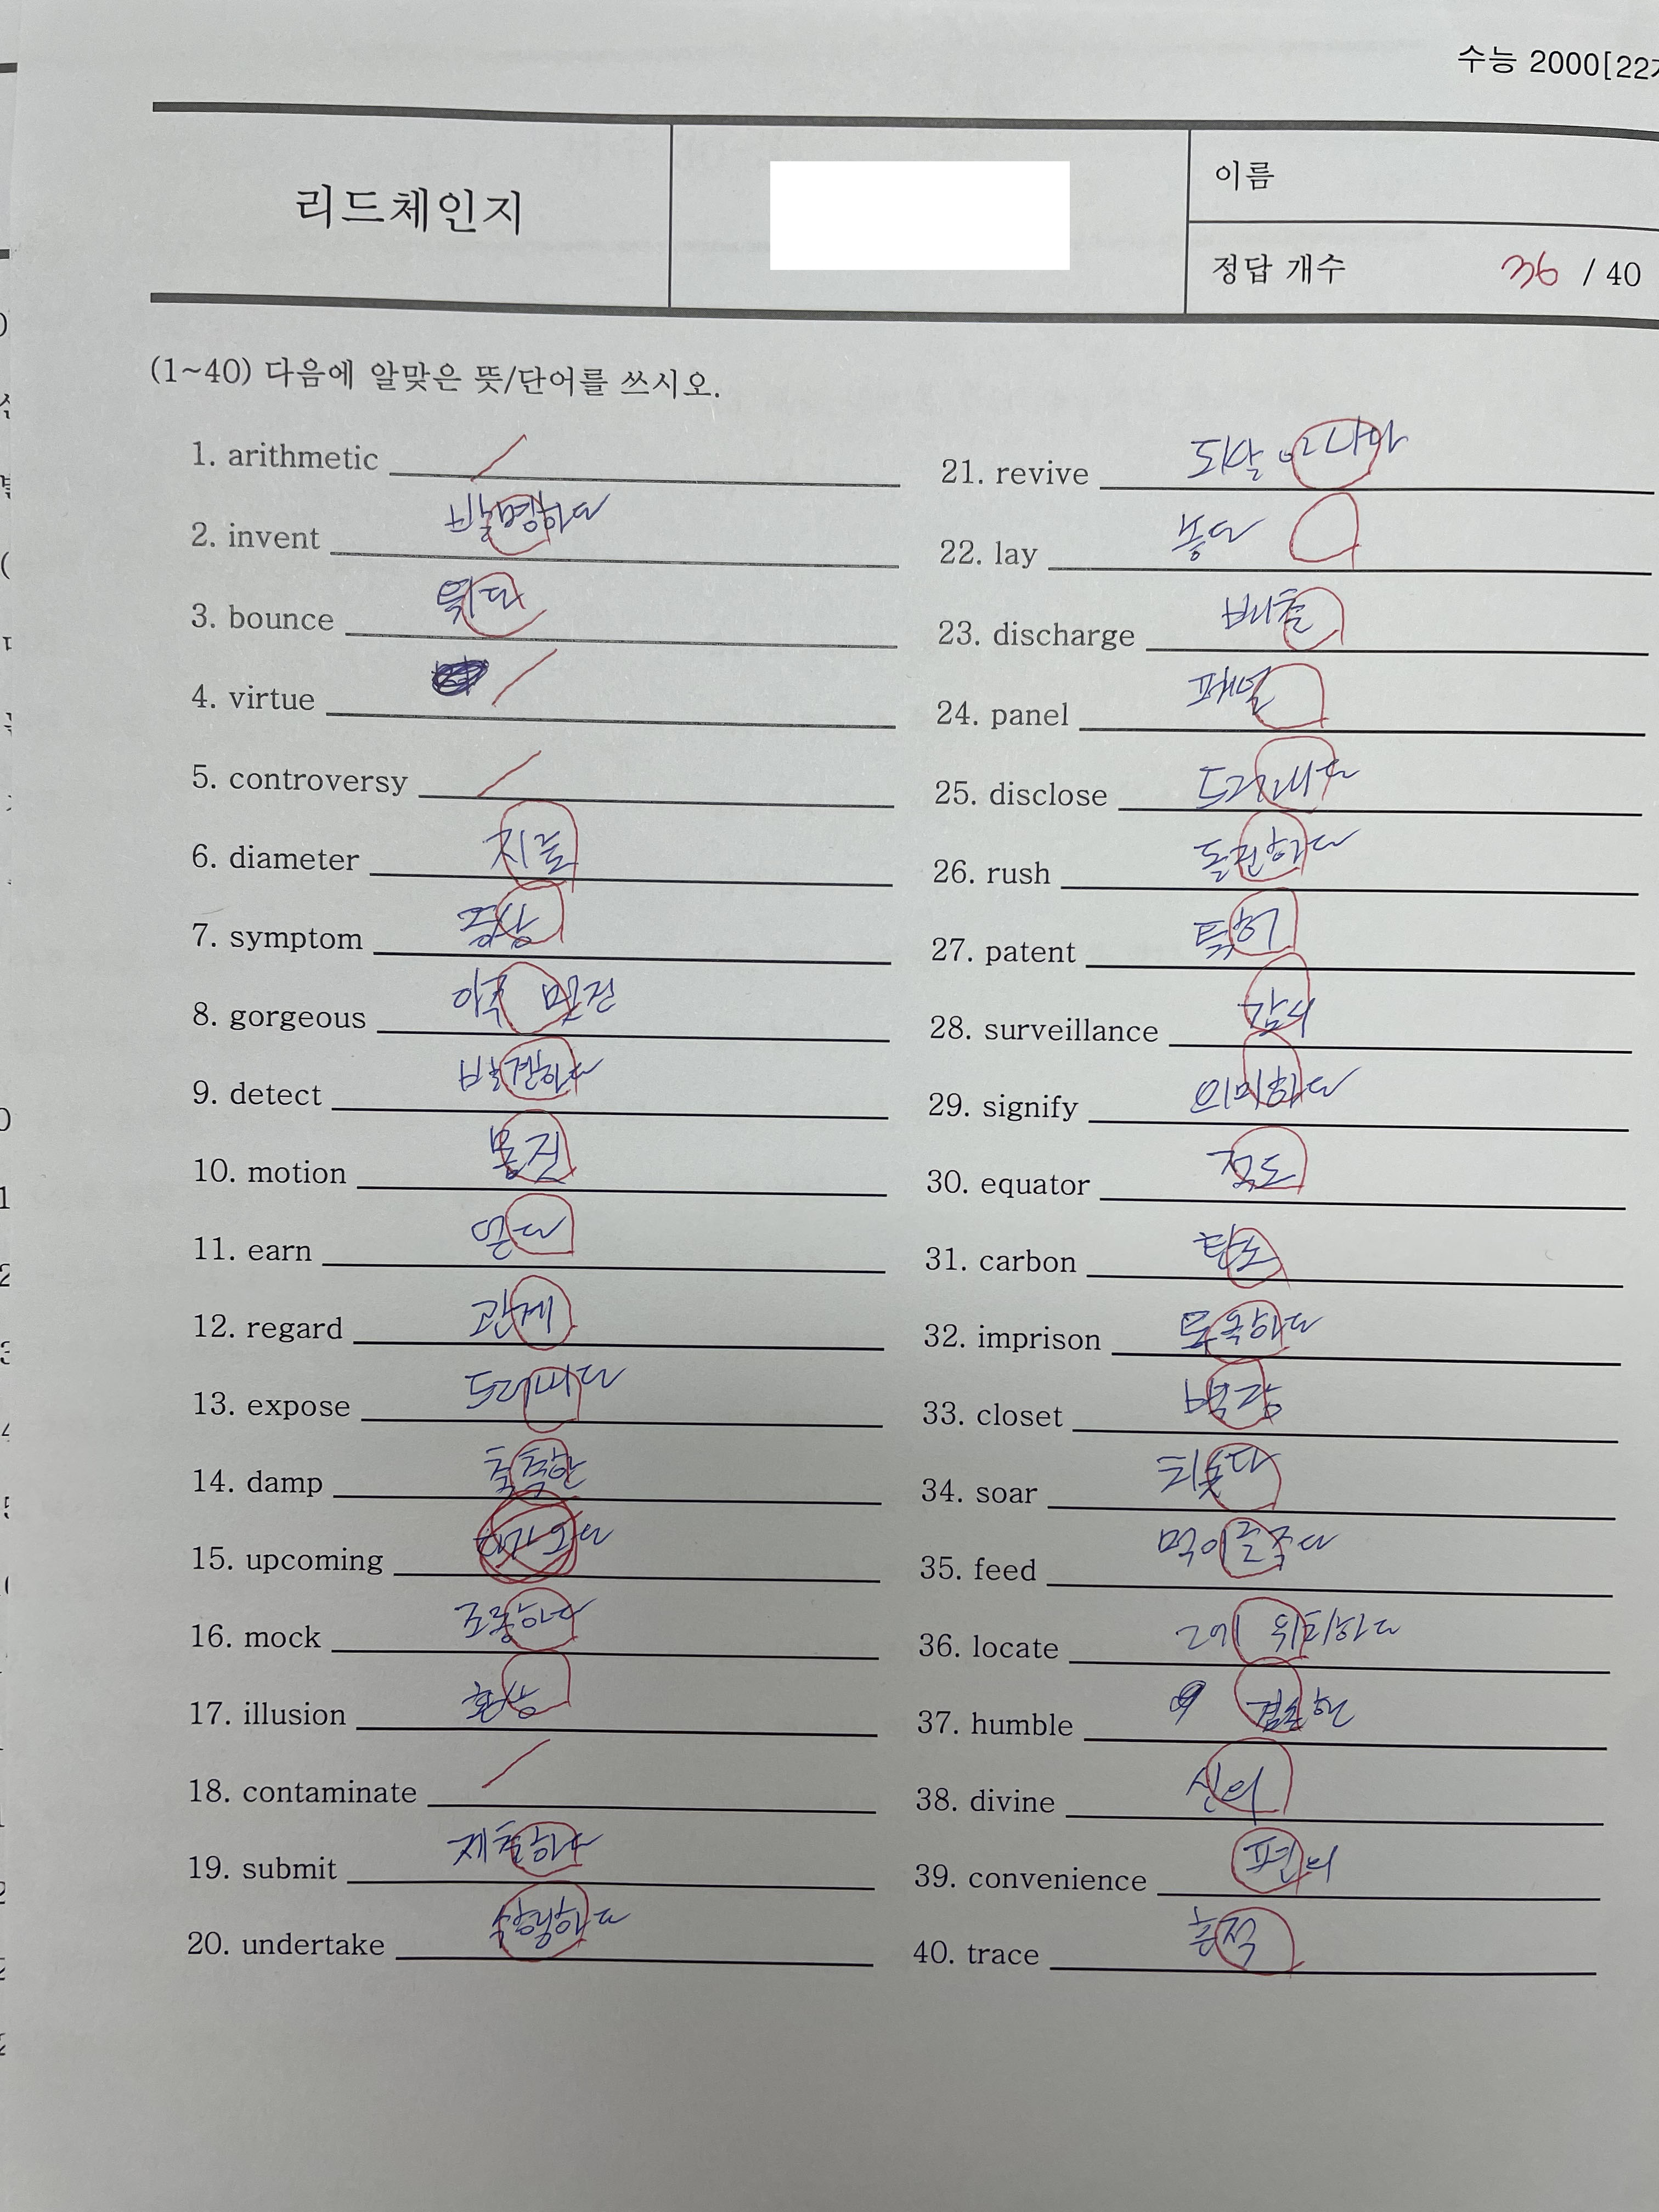 수능 2000[22
리드체인지
이름
정답 개수 36 / 40
(1~40) 다음에 알맞은 뜻/단어를 쓰시오.
1. arithmetic
2. invent 발명하다
3. bounce 튀다
4. virtue
5. controversy
6. diameter 지름
7. symptom 증상
8. gorgeous 아주 멋진
9. detect 발견하다
10. motion 움직
11. earn 얻다
12. regard 관계
13. expose 드러내다
14. damp 축축한
15. upcoming 다가오다
16. mock 조롱하다
17. illusion 환상
18. contaminate
19. submit 제출하다
20. undertake 수행하다
21. revive 되살아나다
22. lay 놓다
23. discharge 배출
24. panel 패널
25. disclose 드러내다
26. rush 돌진하다
27. patent 특허
28. surveillance 감시
29. signify 의미하다
30. equator 적도
31. carbon 탄소
32. imprison 투옥하다
33. closet 벽장
34. soar 치솟다
35. feed 먹이를 주다
36. locate ~에 위치하다
37. humble 겸손한
38. divine 신의
39. convenience 편의
40. trace 흔적